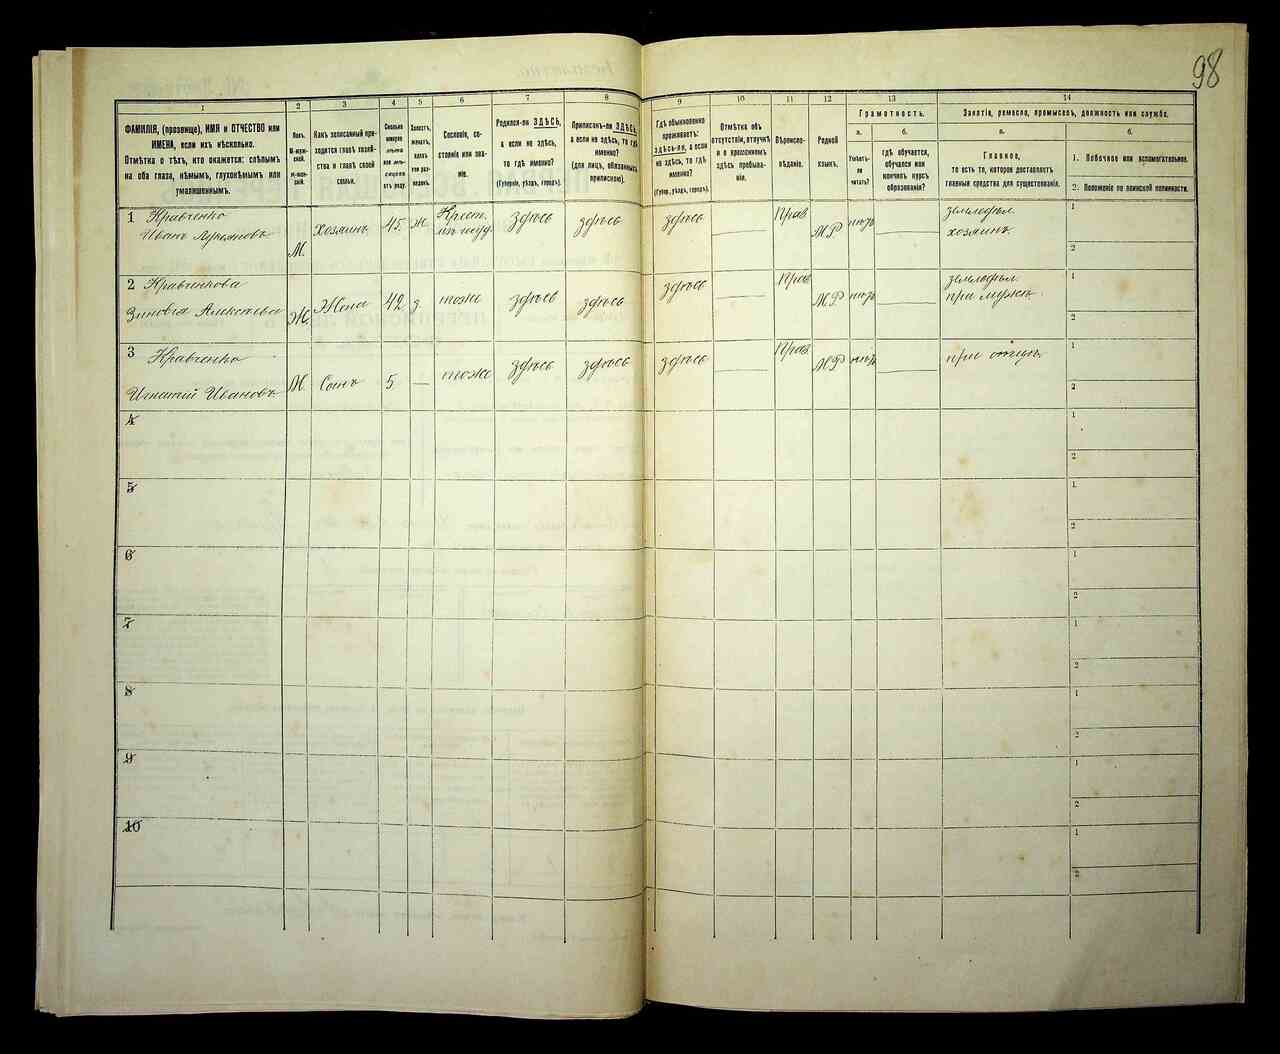 98
1 2 3 4 5 6 7 8 9 10 11 12 13 14
ФАМИЛІЯ, (прозвище), ИМЯ и ОТЧЕСТВО или
ИМЕНА, если ихъ нѣсколько.
Отмѣтка о тѣхъ, кто окажется: слѣпымъ
на оба глаза, нѣмымъ, глухонѣмымъ или
умалишеннымъ.
Полъ.
М-мужской.
Ж-женскій.
Какъ записанный приходится
главѣ хозяйства
и главѣ своей
семьи.
Сколько
минуло
лѣтъ
или мѣсяцевъ
отъ роду.
Холостъ,
женатъ,
вдовъ
или разведенъ.
Сословіе, состояніе
или званіе.
Родился-ли ЗДѢСЬ,
а если не здѣсь,
то гдѣ именно?
(Губернія, уѣздъ, городъ).
Приписанъ-ли ЗДѢСЬ,
а если не здѣсь, то гдѣ
именно?
(для лицъ, обязанныхъ
припискою).
Гдѣ обыкновенно
проживаетъ:
ЗДѢСЬ-ЛИ, а если
не здѣсь, то гдѣ
именно?
(Губер., уѣздъ, городъ).
Отмѣтка объ
отсутствіи, отлучкѣ
и о временномъ
здѣсь пребываніи.
Вѣроисповѣданіе.
Родной
языкъ.
Грамотность.
а.
Умѣетъ-ли
читать?
б.
гдѣ обучается,
обучался или
кончилъ курсъ
образованія?
Занятіе, ремесло, промыселъ, должность или служба.
а.
Главное,
то есть то, которое доставляетъ
главныя средства для существованія.
б.
1. Побочное или вспомогательное.
2. Положеніе по воинской повинности.
1 Кравченко
Иванъ Лукьяновъ М. Хозяинъ 45. Ж. Крест. здѣсь здѣсь здѣсь Прав М.Р нѣтъ земледѣл. хозяинъ. 1
2
2 Кравченкова
Зиновья Алексѣева Ж. Жена 42 З. тоже здѣсь здѣсь здѣсь Прав М.Р нѣтъ земледѣл. при мужѣ. 1
2
3 Кравченко
Игнатій Ивановъ М Сынъ 5 — тоже здѣсь здѣсь здѣсь Прав М.Р нѣтъ при отцѣ. 1
2
4 1
2
5 1
2
6 1
2
7 1
2
8 1
2
9 1
2
10 1
2